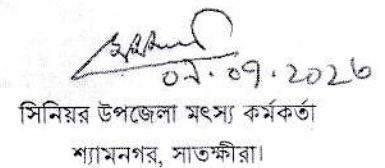 ০৭.০৭.২০২৬
সিনিয়র উপজেলা মৎস্য কর্মকর্তা
শ্যামনগর, সাতক্ষীরা।